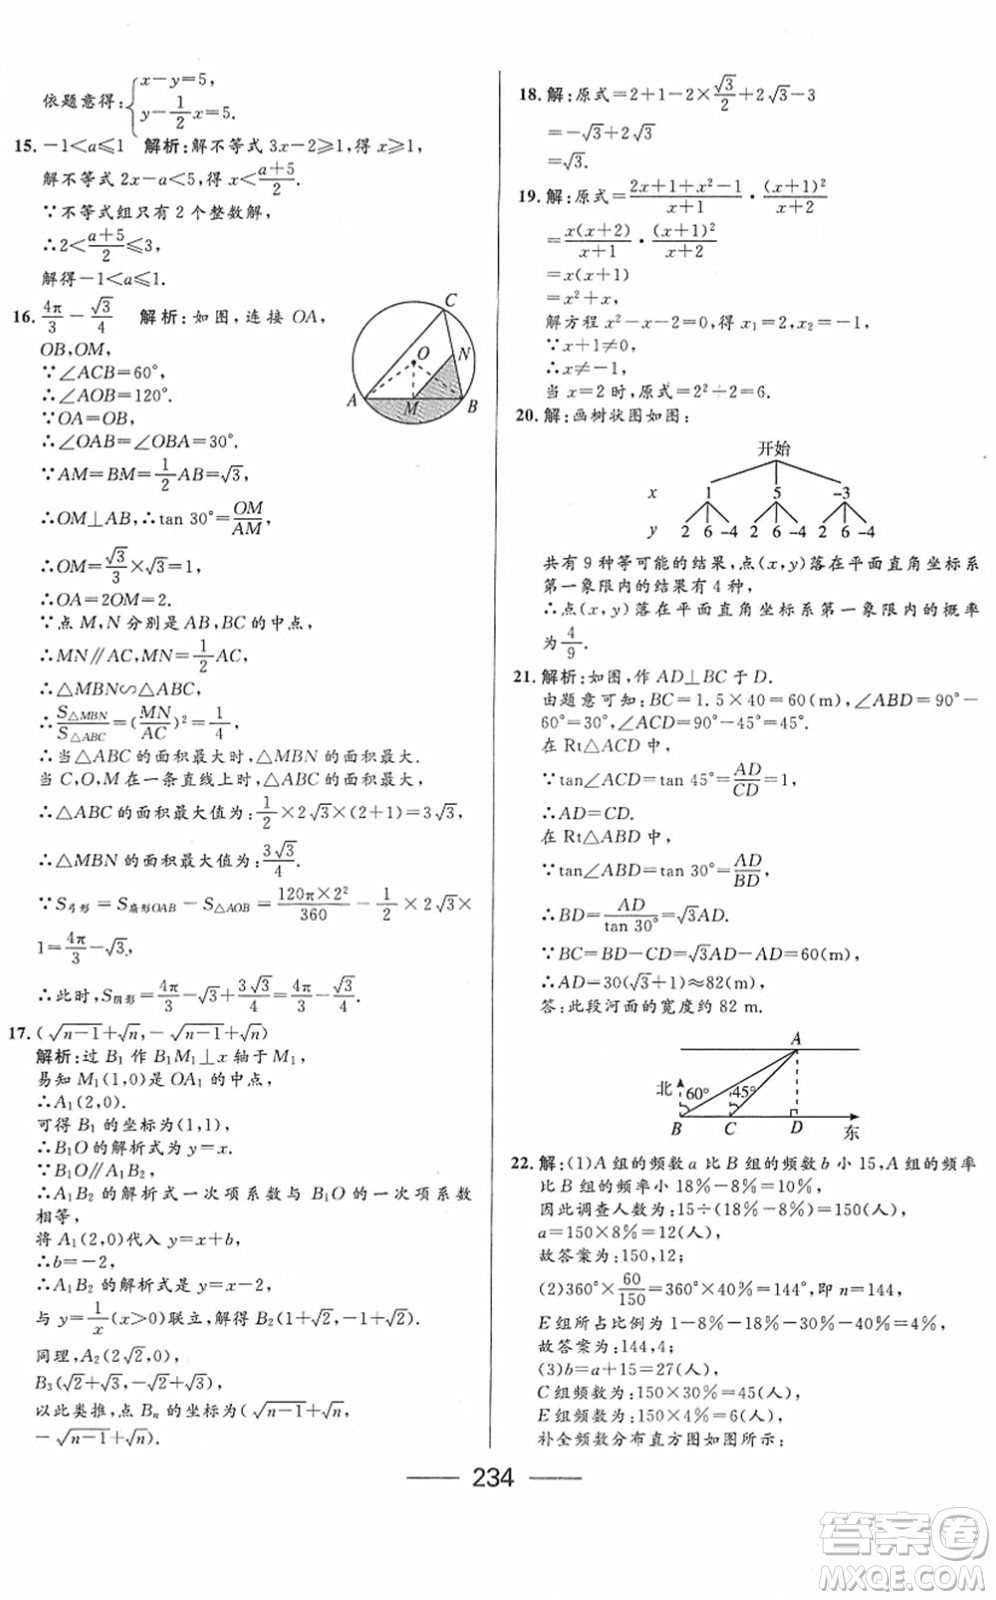 依题意得:{x-y=5,
y-1/2x=5.
15. -1<a≤1 解析:解不等式 3x-2≥1,得 x≥1,
解不等式 2x-a<5,得 x<(a+5)/2.
∵不等式组只有 2 个整数解,
∴2<(a+5)/2≤3,
解得-1<a≤1.
16. 4π/3-√3/4 解析:如图,连接 OA,
OB,OM,
∵∠ACB=60°,
∴∠AOB=120°.
∵OA=OB,
∴∠OAB=∠OBA=30°.
∵AM=BM=1/2AB=√3,
∴OM⊥AB,∴tan 30°=OM/AM,
∴OM=√3/3×√3=1,
∴OA=2OM=2.
∵点 M,N 分别是 AB,BC 的中点,
∴MN∥AC,MN=1/2AC,
∴△MBN∽△ABC,
∴S△MBN/S△ABC=(MN/AC)²=1/4,
∴当△ABC 的面积最大时,△MBN 的面积最大.
当 C,O,M 在一条直线上时,△ABC 的面积最大,
∴△ABC 的面积最大值为:1/2×2√3×(2+1)=3√3,
∴△MBN 的面积最大值为:3√3/4.
∵S弓形=S扇形OAB-S△AOB=120π×2²/360-1/2×2√3×
1=4π/3-√3,
∴此时,S阴影=4π/3-√3+3√3/4=4π/3-√3/4.
C
O
N
A
M
B
17. (√(n-1)+√n,-√(n-1)+√n)
解析:过 B₁ 作 B₁M₁⊥x 轴于 M₁,
易知 M₁(1,0)是 OA₁ 的中点,
∴A₁(2,0).
可得 B₁ 的坐标为(1,1),
∴B₁O 的解析式为 y=x.
∵B₁O∥A₁B₂,
∴A₁B₂ 的解析式一次项系数与 B₁O 的解析式系数
相等,
将 A₁(2,0)代入 y=x+b,
∴b=-2,
∴A₁B₂ 的解析式是 y=x-2,
与 y=1/x(x>0)联立,解得 B₂(1+√2,-1+√2).
同理,A₂(2√2,0),
B₃(√2+√3,-√2+√3),
以此类推,点 Bₙ 的坐标为(√(n-1)+√n,
-√(n-1)+√n).
18. 解:原式=2+1-2×√3/2+2√3-3
=-√3+2√3
=√3.
19. 解:原式=(2x+1+x²-1)/(x+1)·(x+1)²/(x+2)
=x(x+2)/(x+1)·(x+1)²/(x+2)
=x(x+1)
=x²+x,
解方程 x²-x-2=0,得 x₁=2,x₂=-1,
∵x+1≠0,
∴x≠-1,
当 x=2 时,原式=2²+2=6.
20. 解:画树状图如图:
开始
x 1 5 -3
y 2 6 -4 2 6 -4 2 6 -4
共有 9 种等可能的结果,点(x,y)落在平面直角坐标系
第一象限内的结果有 4 种,
∴点(x,y)落在平面直角坐标系第一象限内的概率
为4/9.
21. 解析:如图,作 AD⊥BC 于 D.
由题意可知:BC=1.5×40=60(m),∠ABD=90°-
60°=30°,∠ACD=90°-45°=45°.
在 Rt△ACD 中,
∵tan∠ACD=tan 45°=AD/CD=1,
∴AD=CD.
在 Rt△ABD 中,
∵tan∠ABD=tan 30°=AD/BD,
∴BD=AD/tan 30°=√3AD.
∵BC=BD-CD=√3AD-AD=60(m),
∴AD=30(√3+1)≈82(m),
答:此段河面的宽度约 82 m.
A
北
60°
45°
B C D 东
22. 解:(1)A 组的频数 a 比 B 组的频数 b 小 15,A 组的频率
比 B 组的频率小 18%-8%=10%,
因此调查人数为:15÷(18%-8%)=150(人),
a=150×8%=12(人),
故答案为:150,12;
(2)360°×60/150=360°×40%=144°,即 n=144,
E 组所占比例为 1-8%-18%-30%-40%=4%,
故答案为:144,4;
(3)b=a+15=27(人),
C 组频数为:150×30%=45(人),
E 组频数为:150×4%=6(人),
补全频数分布直方图如图所示:
234
答案卷
MXQE.COM